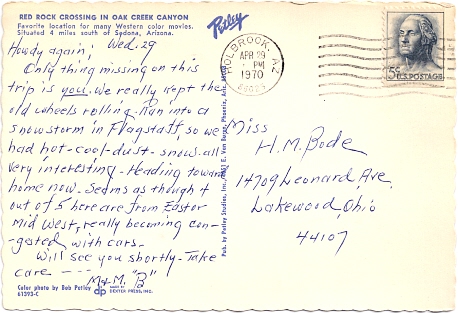 RED ROCK CROSSING IN OAK CREEK CANYON
Favorite location for many Western color movies.
Situated 4 miles south of Sedona, Arizona.
Petley
Wed. 29
Howdy again;
Only thing missing on this
trip is you. We really kept the
old wheels rolling. Ran into a
snowstorm in Flagstaff, so we
had hot-cool-dust-snow-all
very interesting - Heading toward
home now. Seems as though 4
out of 5 here are from East or
Mid West, really becoming con-
gested with cars.
Will see you shortly - Take
care ----
M+M. "B"
Color photo by Bob Petley
61393-C
DEXTER PRESS, INC.
Pub. by Petley Studios, Inc. E. Van Buren, Phoenix, Ariz.
HOLBROOK, AZ
APR 29
PM
1970
5c U.S. POSTAGE
Miss
H. M. Bode
14709 Leonard Ave.
Lakewood, Ohio
44107